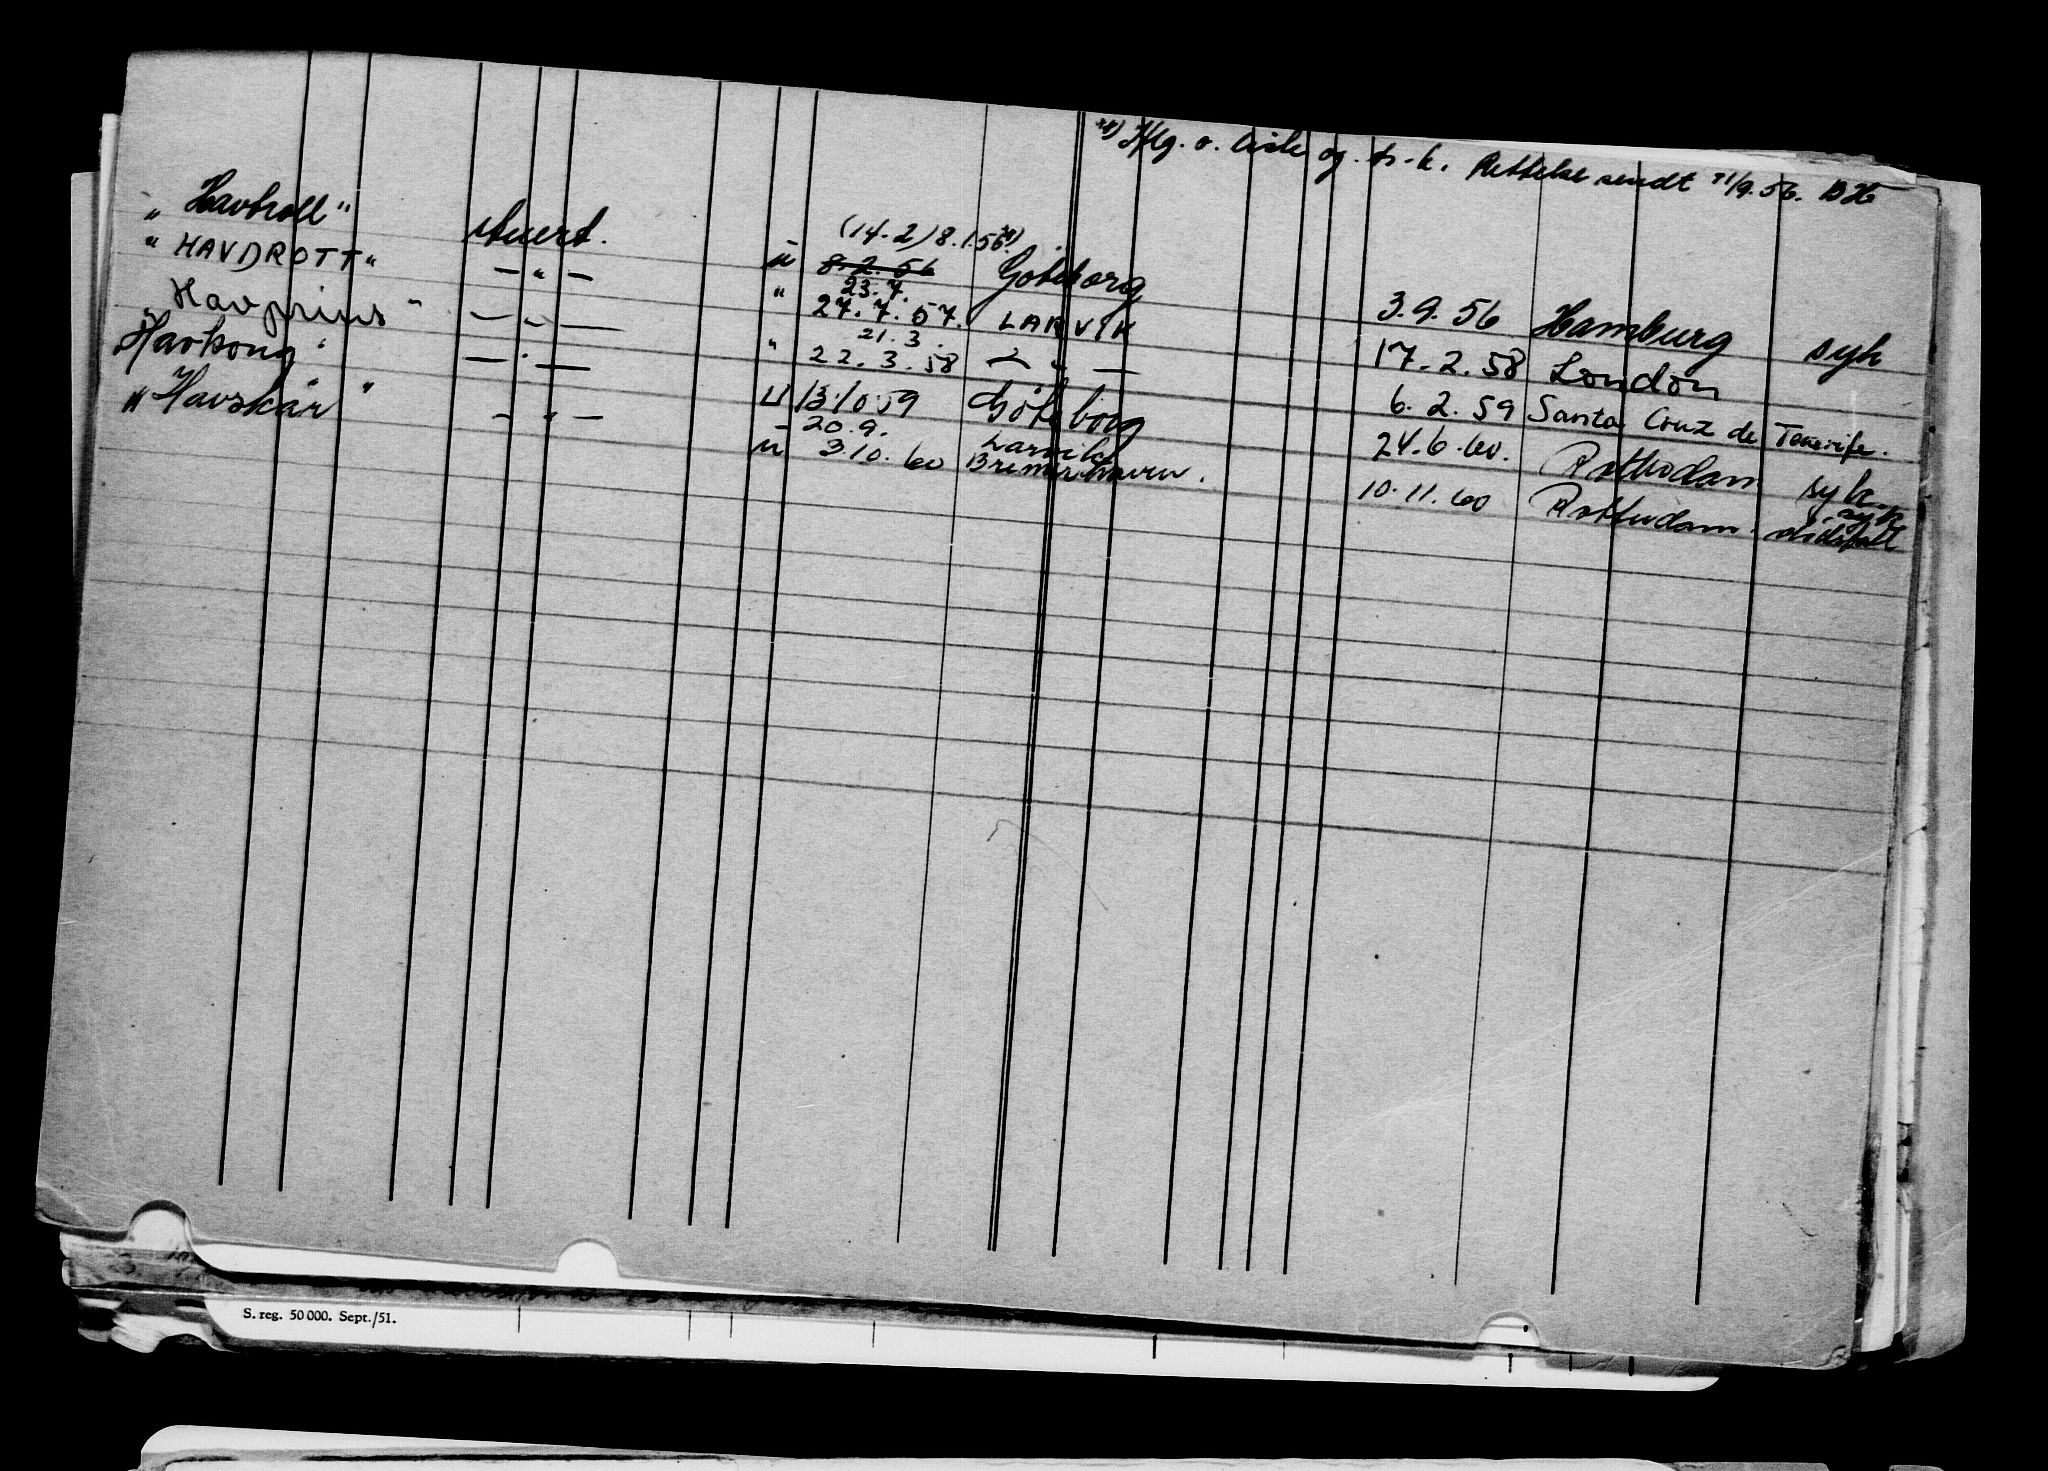 *) Hlg. o. liste og tr.k. Rettelse sendt 21/9.56.
"Havtroll" stuert. u (14.2) 8.1.56*) 8.2.56 Göteborg 3.9.56 Hamburg syk
"HAVDROTT" — " — " 23.7. 27.7.57. LARVIK 17.2.58 London
"Havprins" — " — " 21.3. 22.3.58 — " — 6.2.59 Santa Cruz de Tenerife.
"Havkong" — " — u 13/10 59 Göteborg 24.6.60. Rotterdam syk
"Havskår" — " — u 20.9. 3.10.60 Larvik Bremerhaven. 10.11.60 Rotterdam. syk
S. reg. 50 000. Sept./51.